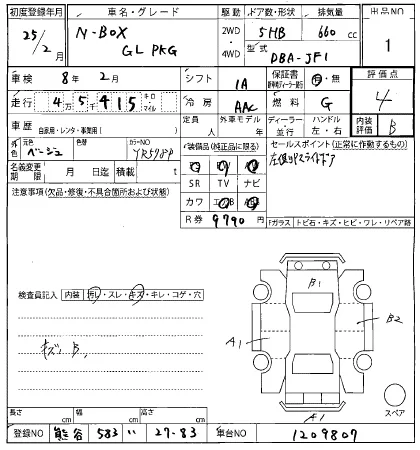 初度登録年月 車名・グレード 駆動 ドア数・形状 排気量 出品NO
25/2月 N-BOX 2WD・4WD 5HB 660cc 1
G L PKG 型式 DBA-JF1
車検 8年 2月 シフト IA 保証書 有・無 評価点
走行 4万5千415キロ・マイル 冷房 AAC 燃料 G 4
車歴 自家用・レンタ・事業用( ) 定員 外車モデル ディーラー ハンドル 内装評価 B
人 年 並行 左・右
外色 元色 ベージュ 色替 カラーNO YR578P 装備品(純正品に限る) セールスポイント(正常に作動するもの)
名義変更期限 月 日迄 積載 t SR TV ナビ 左側Pスライドドア
カワ エアB AW
注意事項(欠品・修復・不具合箇所および状態) R券 9790円 Fガラス トビ石・キズ・ヒビ・ワレ・リペア跡
検査員記入 内装 汚レ・スレ・キズ・キレ・コゲ・穴
キズ B
B1
A1
B2
A1
スペア
長さ cm 幅 cm 高さ cm
登録NO 熊谷 583 い 27-83 車台NO 1209807